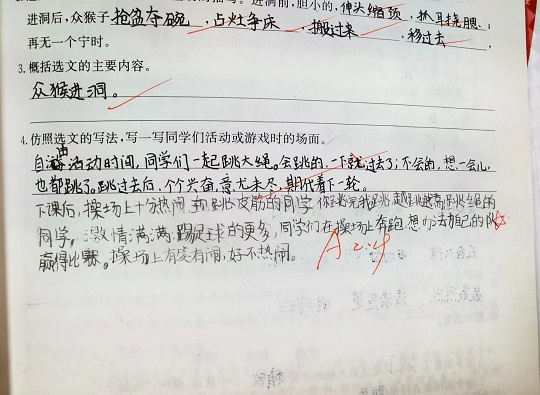 进洞前,胆小的,伸头缩颈,抓耳挠腮;
进洞后,众猴子抢盆夺碗,占灶争床,搬过来,移过去,
再无一个宁时。
3.概括选文的主要内容。
众猴进洞。
4.仿照选文的写法,写一写同学们活动或游戏时的场面。
自由活动时间,同学们一起跳大绳。会跳的,一下就过去了;不会的,想一会儿,
也都跳了。跳过去后,个个兴奋,意犹未尽,期待着下一轮。
下课后,操场上十分热闹 跳皮筋的同学 你跳完我跳 越跳越高 跳绳的
同学。激情满满 踢足球的更多,同学们在操场上奔跑 想办法为自己的队
赢得比赛。操场上有笑有闹,好不热闹。
A 2:4